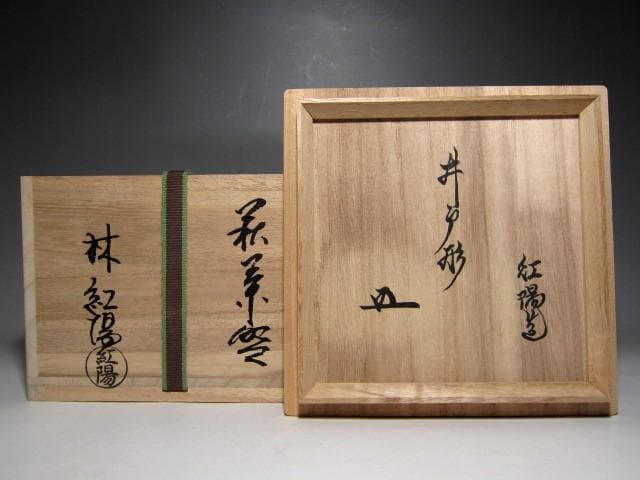 萩茶盌
林 紅陽
紅陽
井戸形
紅陽造